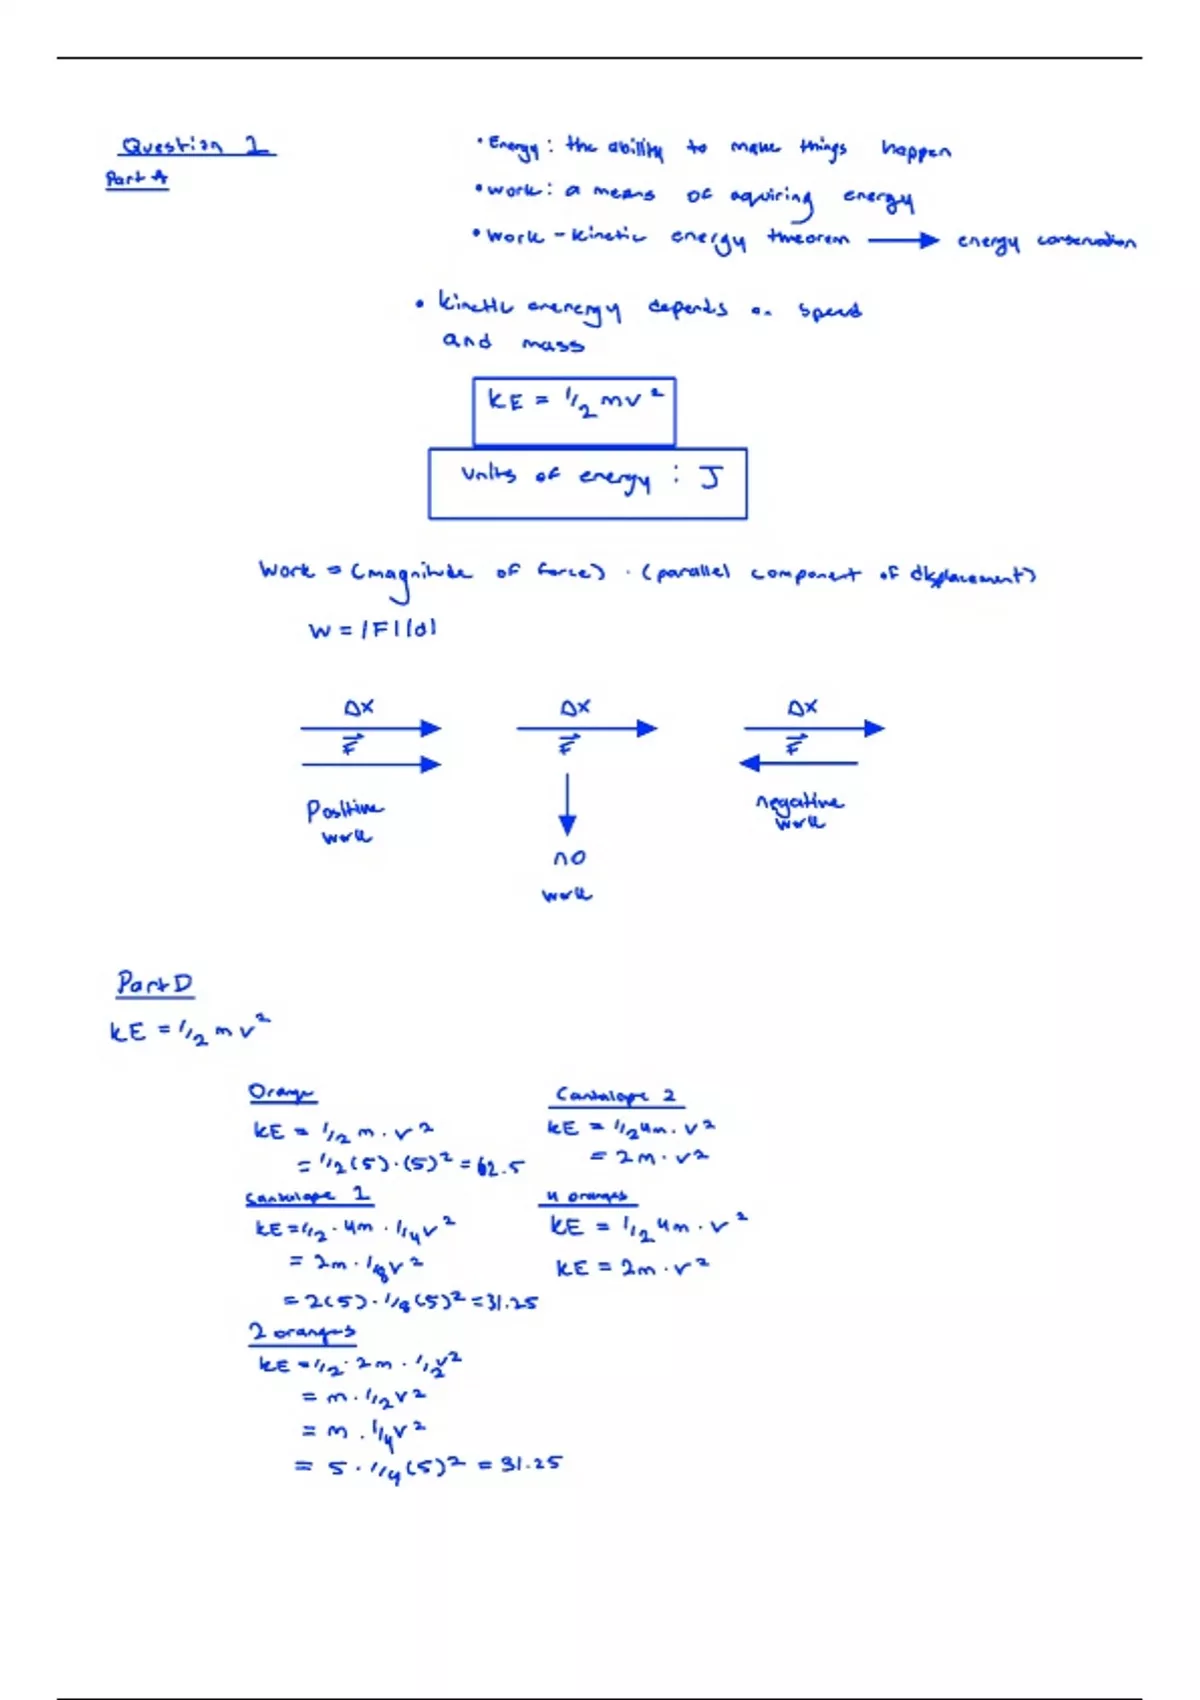 Question 1
Part A
• Energy: the ability to make things happen
• work: a means of aquiring energy
• work - kinetic energy theorem → energy conservation
• kinetic enenergy depends on speed
and mass
KE = 1/2 mv²
Units of energy : J
Work = (magnitude of force) · (parallel component of displacement)
W = |F||d|
Δx Δx Δx
F⃗ F⃗ F⃗
Positive work
no work
negative work
Part D
KE = 1/2 m v²
Orange
KE = 1/2 m · v²
= 1/2 (5) · (5)² = 62.5
Cantalope 2
KE = 1/2 4m · v²
= 2m · v²
Cantalope 1
KE = 1/2 · 4m · 1/4 v²
= 2m · 1/8 v²
= 2(5) · 1/8 (5)² = 31.25
4 oranges
KE = 1/2 4m · v²
KE = 2m · v²
2 oranges
KE = 1/2 · 2m · 1/2 v²
= m · 1/2 v²
= m · 1/4 v²
= 5 · 1/4 (5)² = 31.25